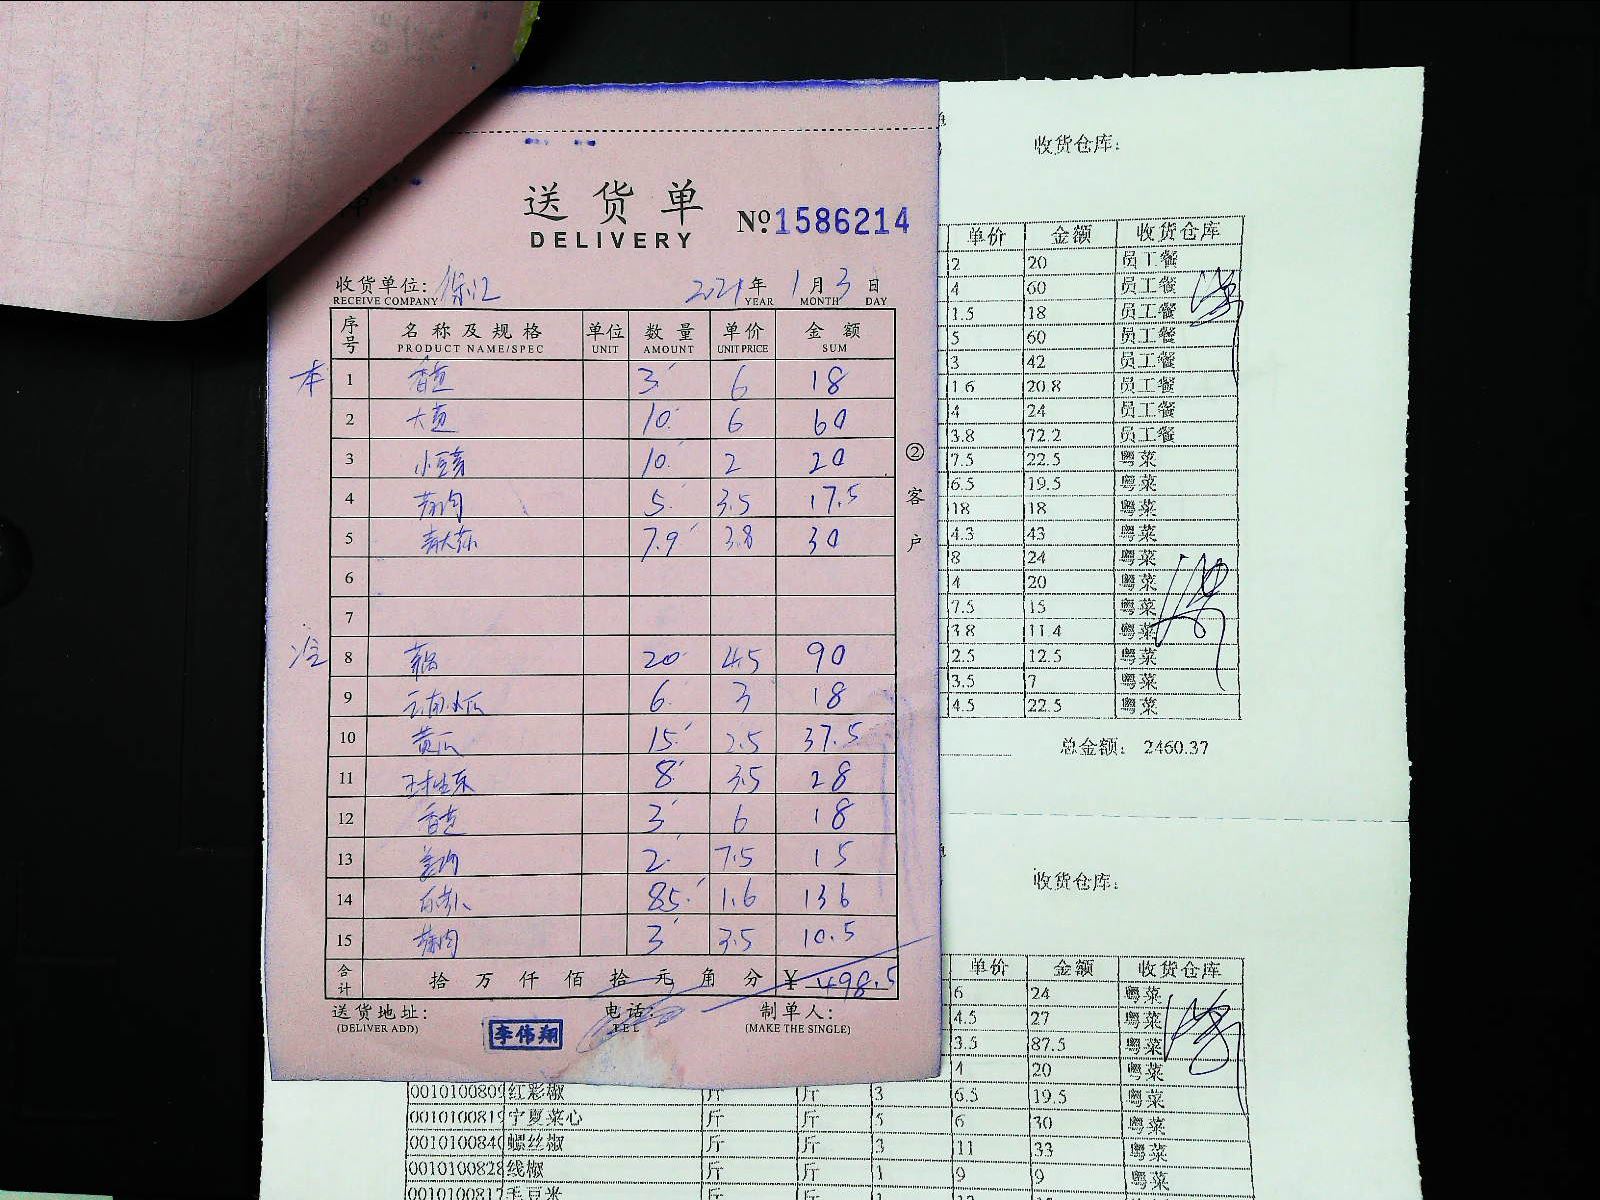 收货仓库:
送货单
DELIVERY
№1586214
收货单位:
2021年 1月 3日
RECEIVE COMPANY YEAR MONTH DAY
序号 名称及规格 单位 数量 单价 金额
PRODUCT NAME/SPEC UNIT AMOUNT UNIT PRICE SUM
本 1 香芹 3 6 18
2 10 6 60
3 小豆芽 10 2 20
4 5 3.5 17.5
5 7.9 3.8 30
6
7
8 20 4.5 90
9 云南小瓜 6 3 18
10 黄瓜 15 2.5 37.5
11 8 3.5 28
12 香芹 3 6 18
13 2 7.5 15
14 85 1.6 136
15 3 3.5 10.5
合计 拾 万 仟 佰 拾 元 角 分 ¥ 498.5
送货地址: 电话: 制单人:
(DELIVER ADD) TEL (MAKE THE SINGLE)
李伟翔
②客户
单价 金额 收货仓库
2 20 员工餐
4 60 员工餐
1.5 18 员工餐
5 60 员工餐
3 42 员工餐
1.6 20.8 员工餐
4 24 员工餐
3.8 72.2 员工餐
7.5 22.5 粤菜
6.5 19.5 粤菜
18 18 粤菜
4.3 43 粤菜
8 24 粤菜
4 20 粤菜
7.5 15 粤菜
3.8 11.4 粤菜
2.5 12.5 粤菜
3.5 7 粤菜
4.5 22.5 粤菜
总金额: 2460.37
收货仓库:
单价 金额 收货仓库
6 24 粤菜
4.5 27 粤菜
3.5 87.5 粤菜
4 20 粤菜
0010100809 红彩椒 斤 斤 3 6.5 19.5 粤菜
0010100819 宁夏菜心 斤 斤 5 6 30 粤菜
001010084 螺丝椒 斤 斤 3 11 33 粤菜
0010100828 线椒 斤 斤 1 9 9 粤菜
0010100817 毛豆米